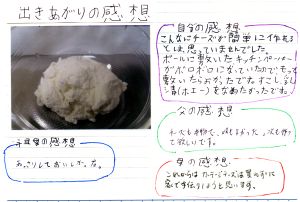 出きあがりの感想
自分の感想
こんなにチーズが簡単に作れる
とは思っていませんでした。
ボールに敷いたキッチンペーパー
がボロボロになっていたので、もって
敷いたらよかったです。すこし乳
清(ホエー)をなめたかったです。
父の感想
て欲しいです。
母の感想
これからはカッテージチーズは買わずに
家で手作りしようと思います。
の感想
あっさりしておいしかった。